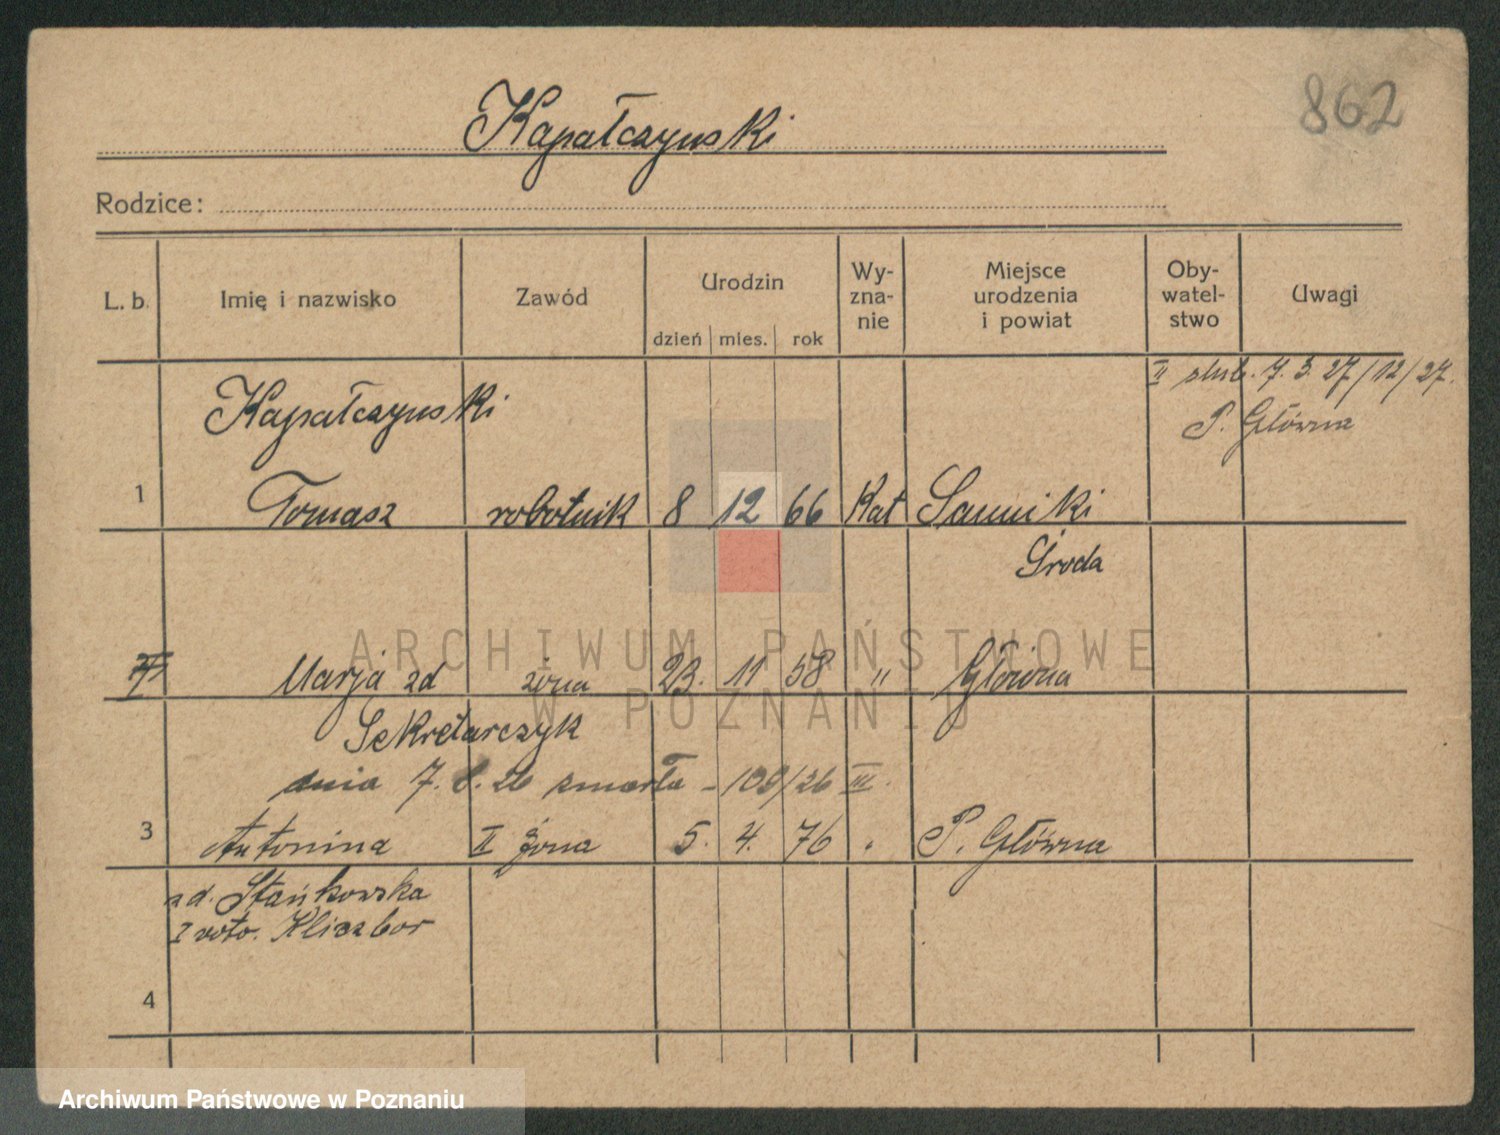 862
Kapałczyński
Rodzice:
L. b. Imię i nazwisko Zawód Urodzin dzień mies. rok Wy-zna-nie Miejsce urodzenia i powiat Oby-watel-stwo Uwagi
II ślub. 7. 3. 27/12/27.
Kapałczyński P. Główna
1 Tomasz robotnik 8 12 66 Kat Sanniki
Środa
Marja zd żona 23. 11 58 " Główna
Sekretarczyk
dnia 7. 8. 26 zmarła - 109/26 III.
3 Antonina II żona 5. 4. 76 " P. Główna
zd. Stańkowska
I voto. Kliczbor
4
ARCHIWUM PAŃSTWOWE
W POZNANIU
Archiwum Państwowe w Poznaniu